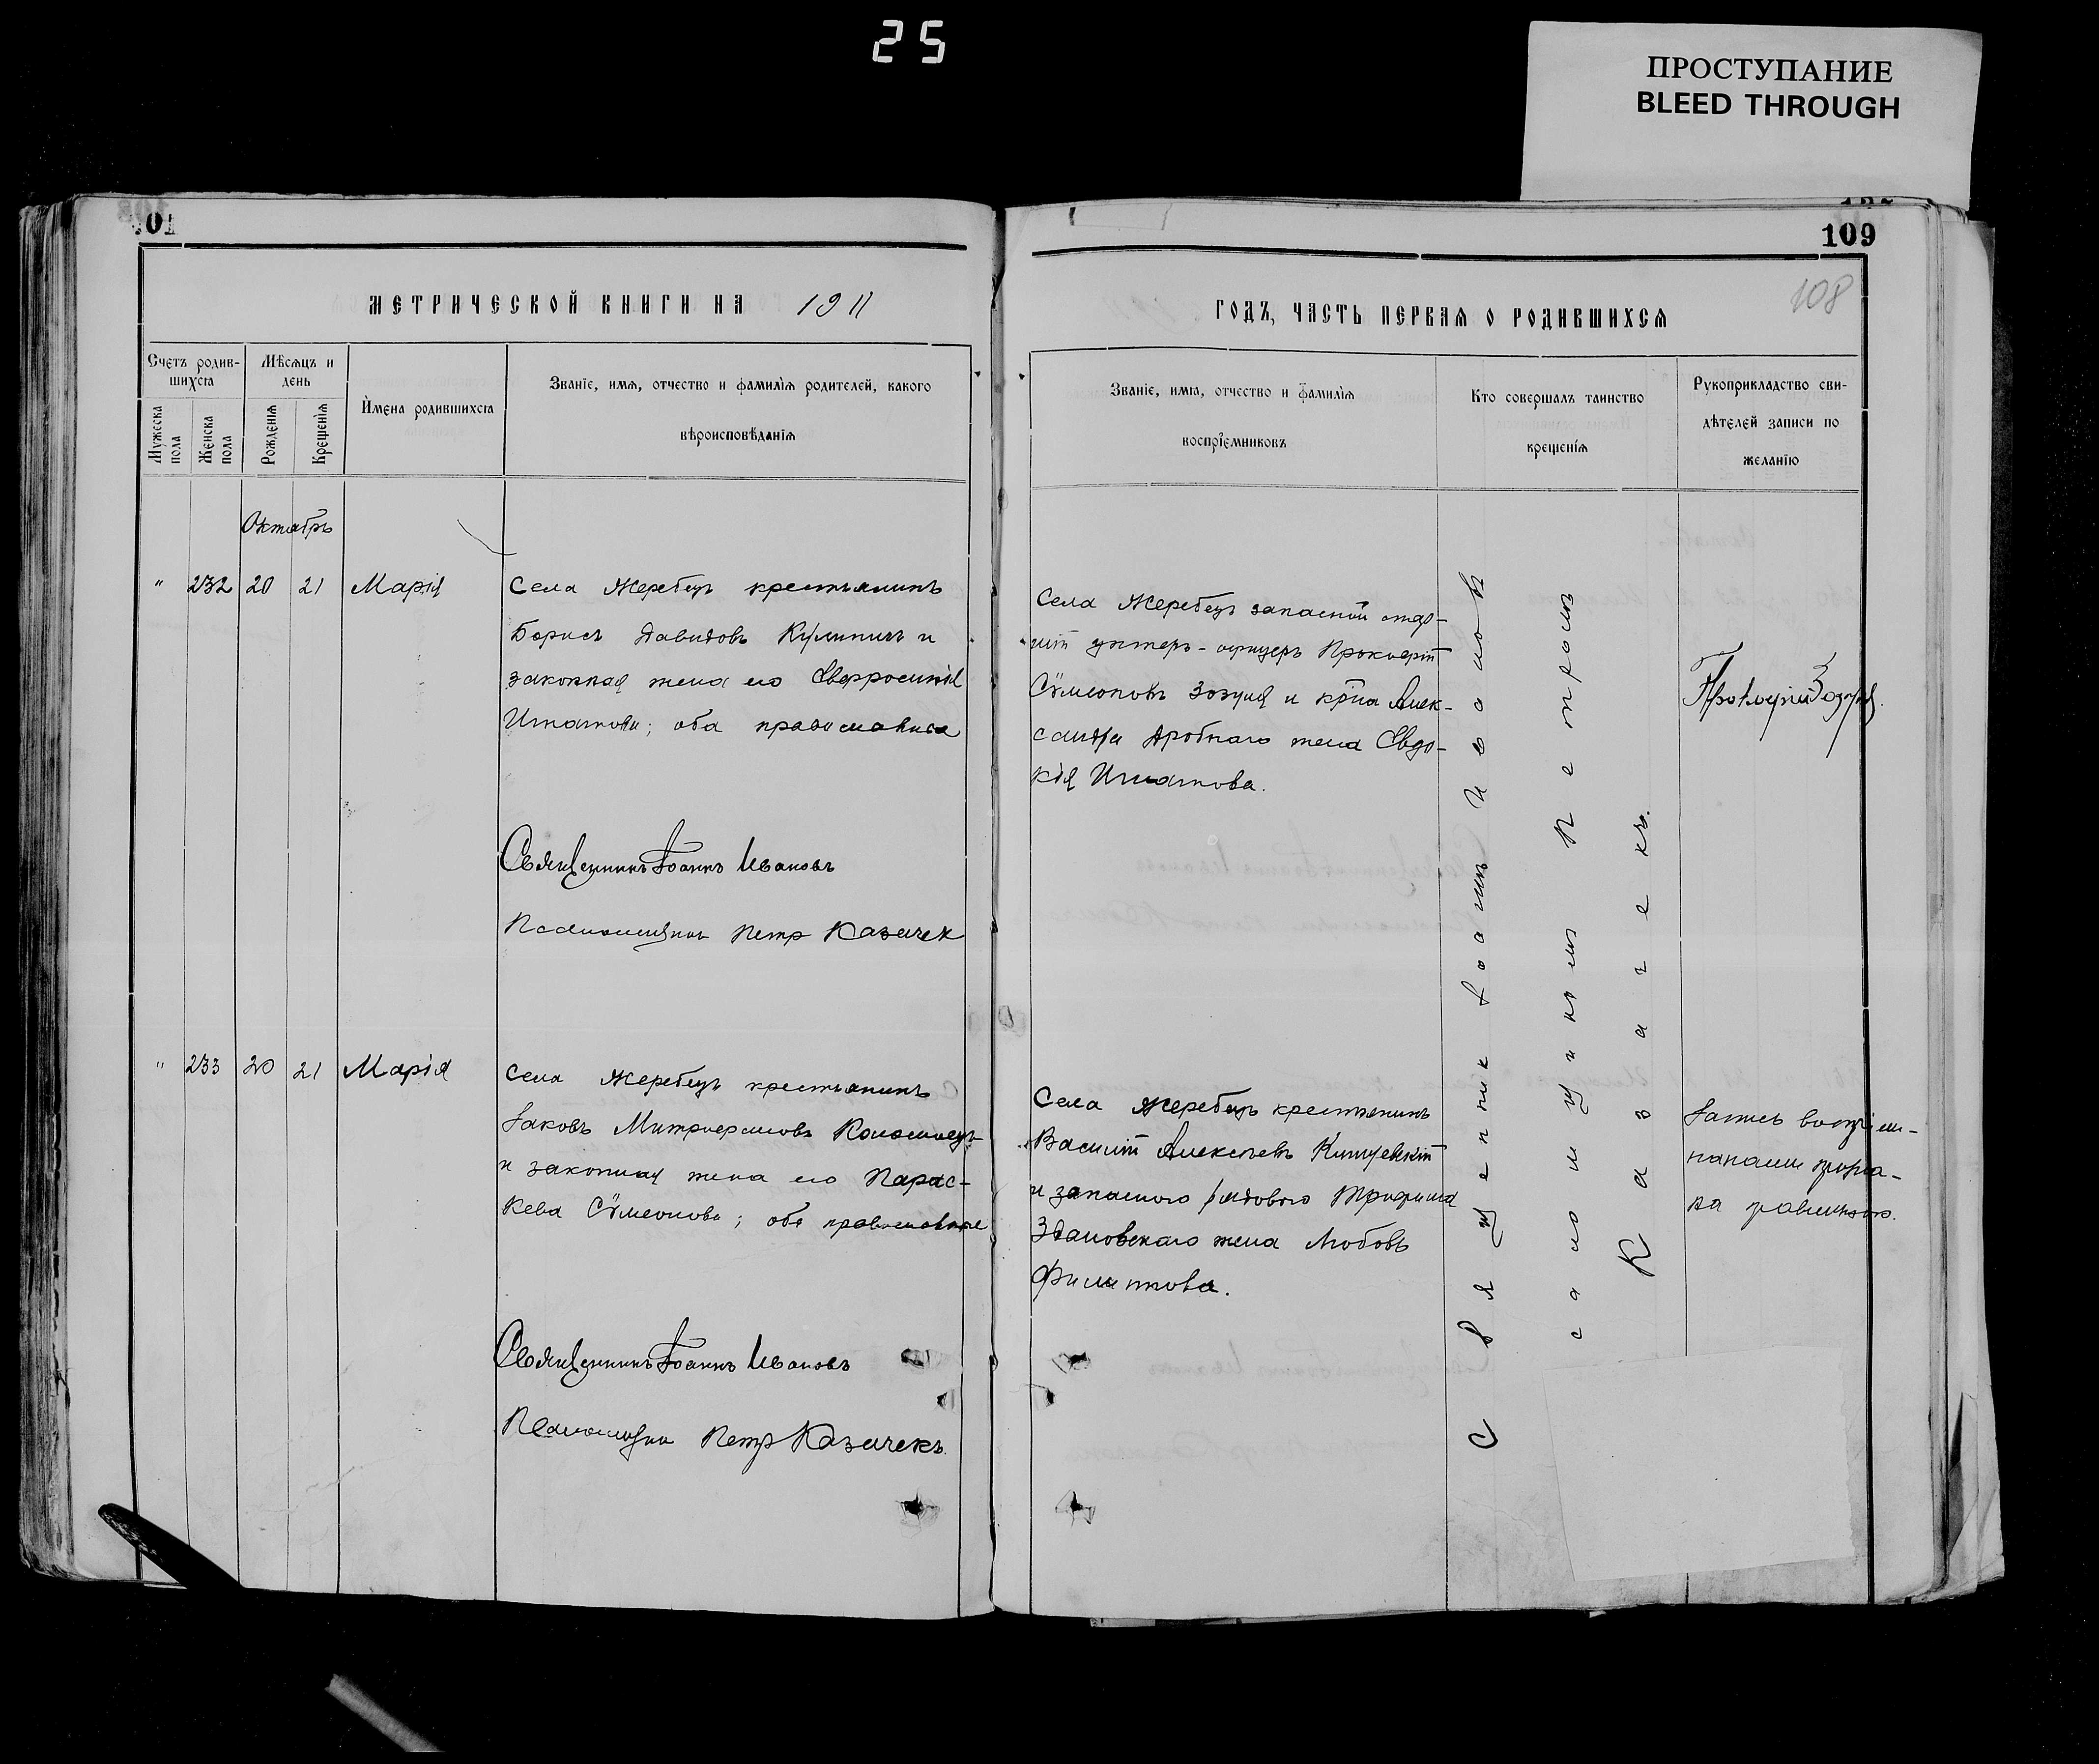 25
ПРОСТУПАНИЕ
BLEED THROUGH
109
108
МЕТРИЧЕСКОЙ КНИГИ НА 1911
ГОДЪ, ЧАСТЬ ПЕРВАЯ О РОДИВШИХСЯ
Счетъ родив-
шихся
Мужеска пола
Женска пола
Мѣсяцъ и
день
Рожденія
Крещенія
Имена родившихся
Званіе, имя, отчество и фамилія родителей, какого
вѣроисповѣданія
Званіе, имя, отчество и фамилія
воспріемниковъ
Кто совершалъ таинство
крещенія
Рукоприкладство сви-
дѣтелей записи по
желанію
Октябрь
" 232 20 21 Марія
Села Жеребецъ крестьянинъ
Борисъ Давидовъ Кулиничъ и
законная жена его Евфросинія
Игнатова; оба православные
Священникъ Іоаннъ Ивановъ
Псаломщикъ Петръ Казачек
Села Жеребецъ запасной
унтеръ-офицеръ Прокофій
Сѵмеоновъ Зозуля и кр-на Алек-
сандра Дробнаго жена Евдо-
кія Игнатова.
Прокофій Зозуля.
" 233 20 21 Марія
Села Жеребецъ крестьянинъ
Іаковъ Митрофановъ Коломоецъ
и законная жена его Парас-
кева Сѵмеонова; оба православные
Священникъ Іоаннъ Ивановъ
Псаломщикъ Петръ Казачекъ.
Села Жеребецъ крестьянинъ
Василій Алексѣевъ
и запасного рядового Трифима
Здановскаго жена Любовь
Филиппова.
Священник Іоаннъ Ивановъ
съ псаломщикомъ Петромъ
Казачекъ.